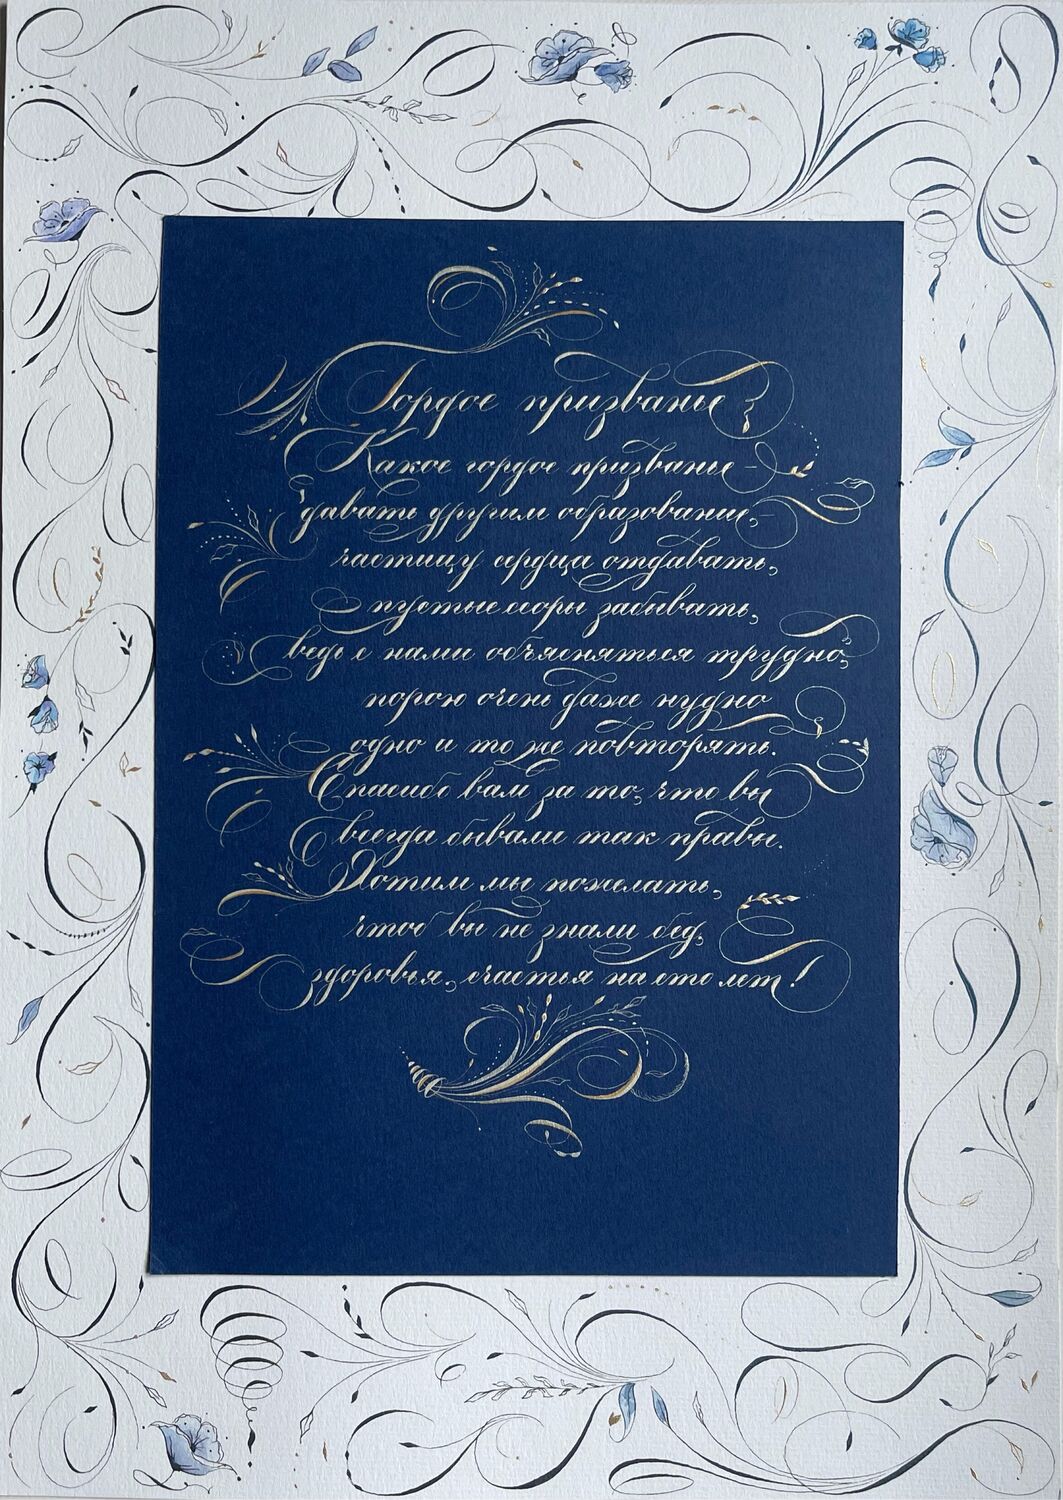 Гордое призванье
Какое гордое призванье –
давать другим образование,
частицу сердца отдавать,
пустые ссоры забывать,
ведь с нами объясняться трудно,
порою очень даже нудно
одно и то же повторять.
Спасибо вам за то, что вы
всегда бывали так правы.
Хотим мы пожелать,
чтоб вы не знали бед,
здоровья, счастья на сто лет!